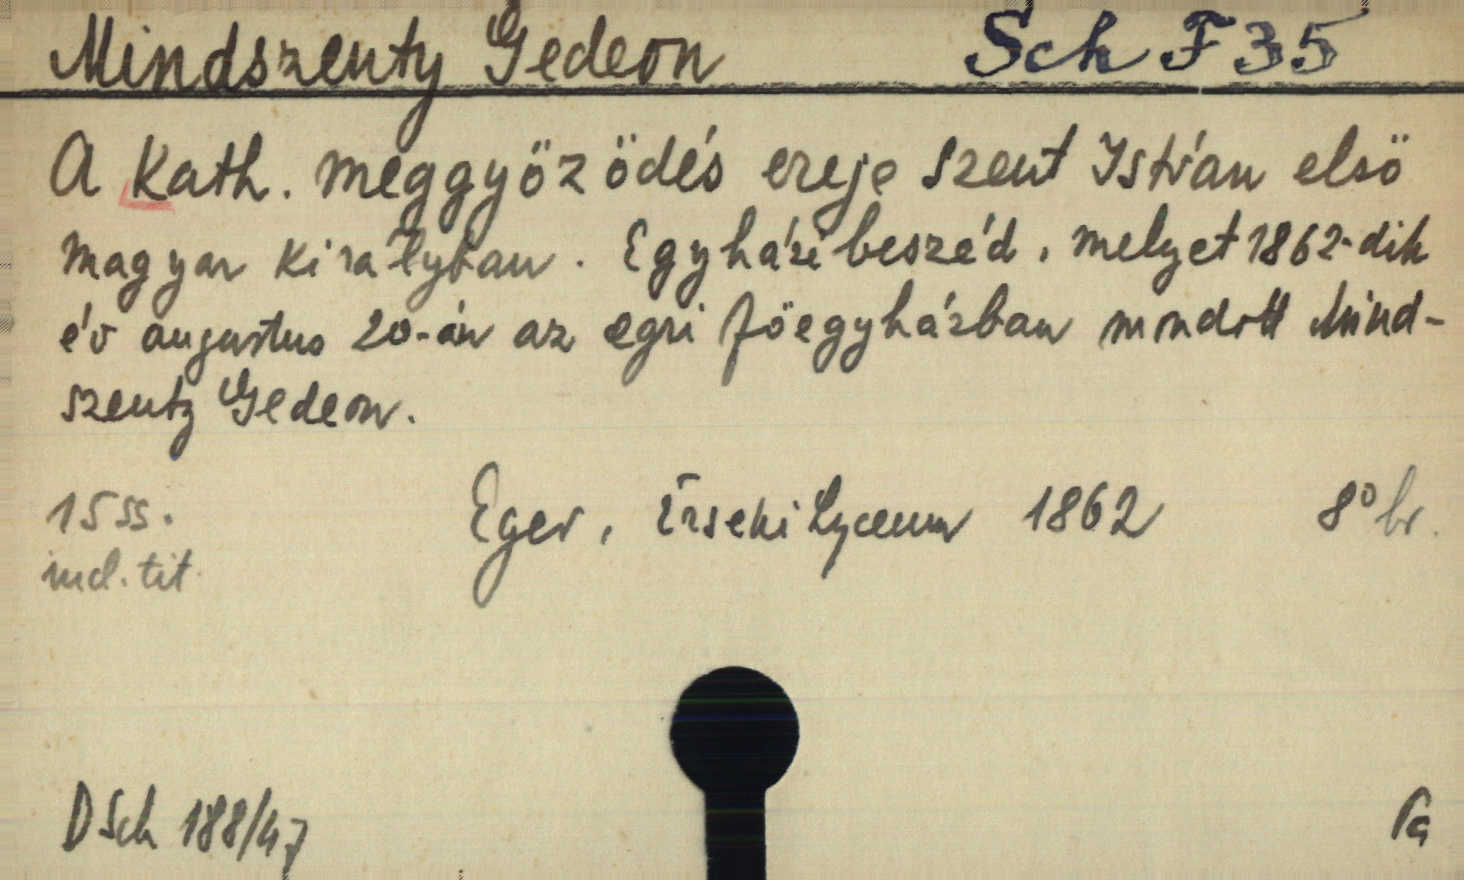 Mindszenty Gedeon Sch F 35
A Kath. meggyözödés ereje Szent István elsö
magyar királyban. Egyházi beszéd, melyet 1862-dik
év augustus 20-án az egri föegyházban mondott Mind-
szenty Gedeon.
15 ss. Eger, Érseki Lyceum 1862 8° br.
incl. tit.
DSch 188/47 Pa